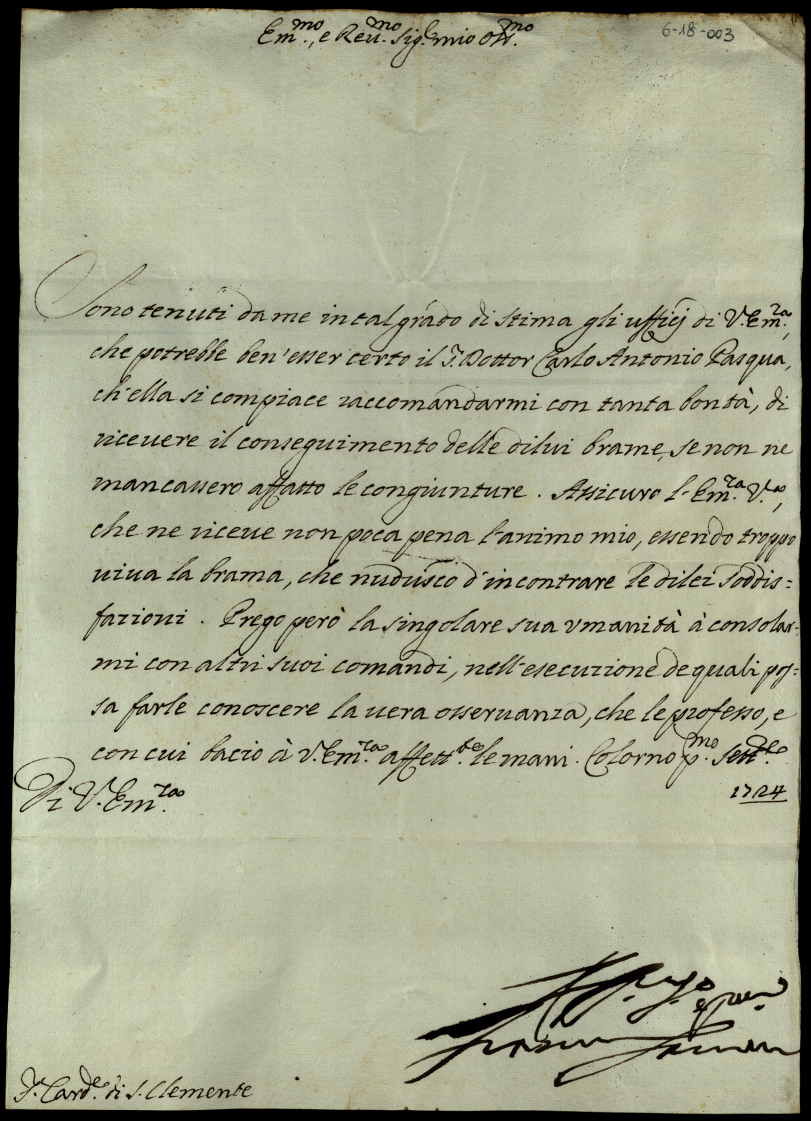 Em.mo, e Reu.mo Sig.r mio Oss.mo
6-18-003
Sono tenuti da me in tal grado di stima gli ufficij di V. Em.za,
che potrebbe ben'esser certo il S. Dottor Carlo Antonio Pasqua,
ch'ella si compiace raccomandarmi con tanta bontà, di
riceuere il conseguimento delle di lui brame, se non ne
mancassero affatto le congiunture. Assicuro l'Em.za V.ra,
che ne riceue non poca pena l'animo mio, essendo troppo
uiua la brama, che nudrisco d'incontrare le di lei soddis=
fazioni. Prego però la singolare sua vmanità à consolar=
mi con altri suoi comandi, nell'esecuzione de quali pos=
sa farle conoscere la uera osseruanza, che le professo, e
con cui bacio à V. Em.za affett.te le mani. Colorno p.mo Sett.e
1724
Di V. Em.za
S.r Card.le di S. Clemente